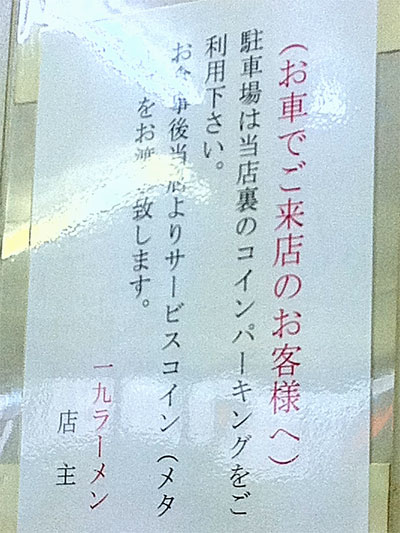 (お車でご来店のお客様へ)
駐車場は当店裏のコインパーキングをご
利用下さい。
お食事後当店よりサービスコイン(メタ
をお渡し致します。
一九ラーメン
店主